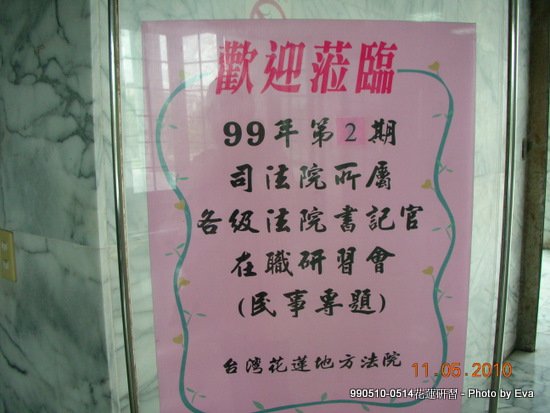 歡迎蒞臨
99年第2期
司法院所屬
各级法院書記官
在職研習會
(民事專題)
台湾花蓮地方法院
11.05.2010
990510-0514花蓮研習 - Photo by Eva